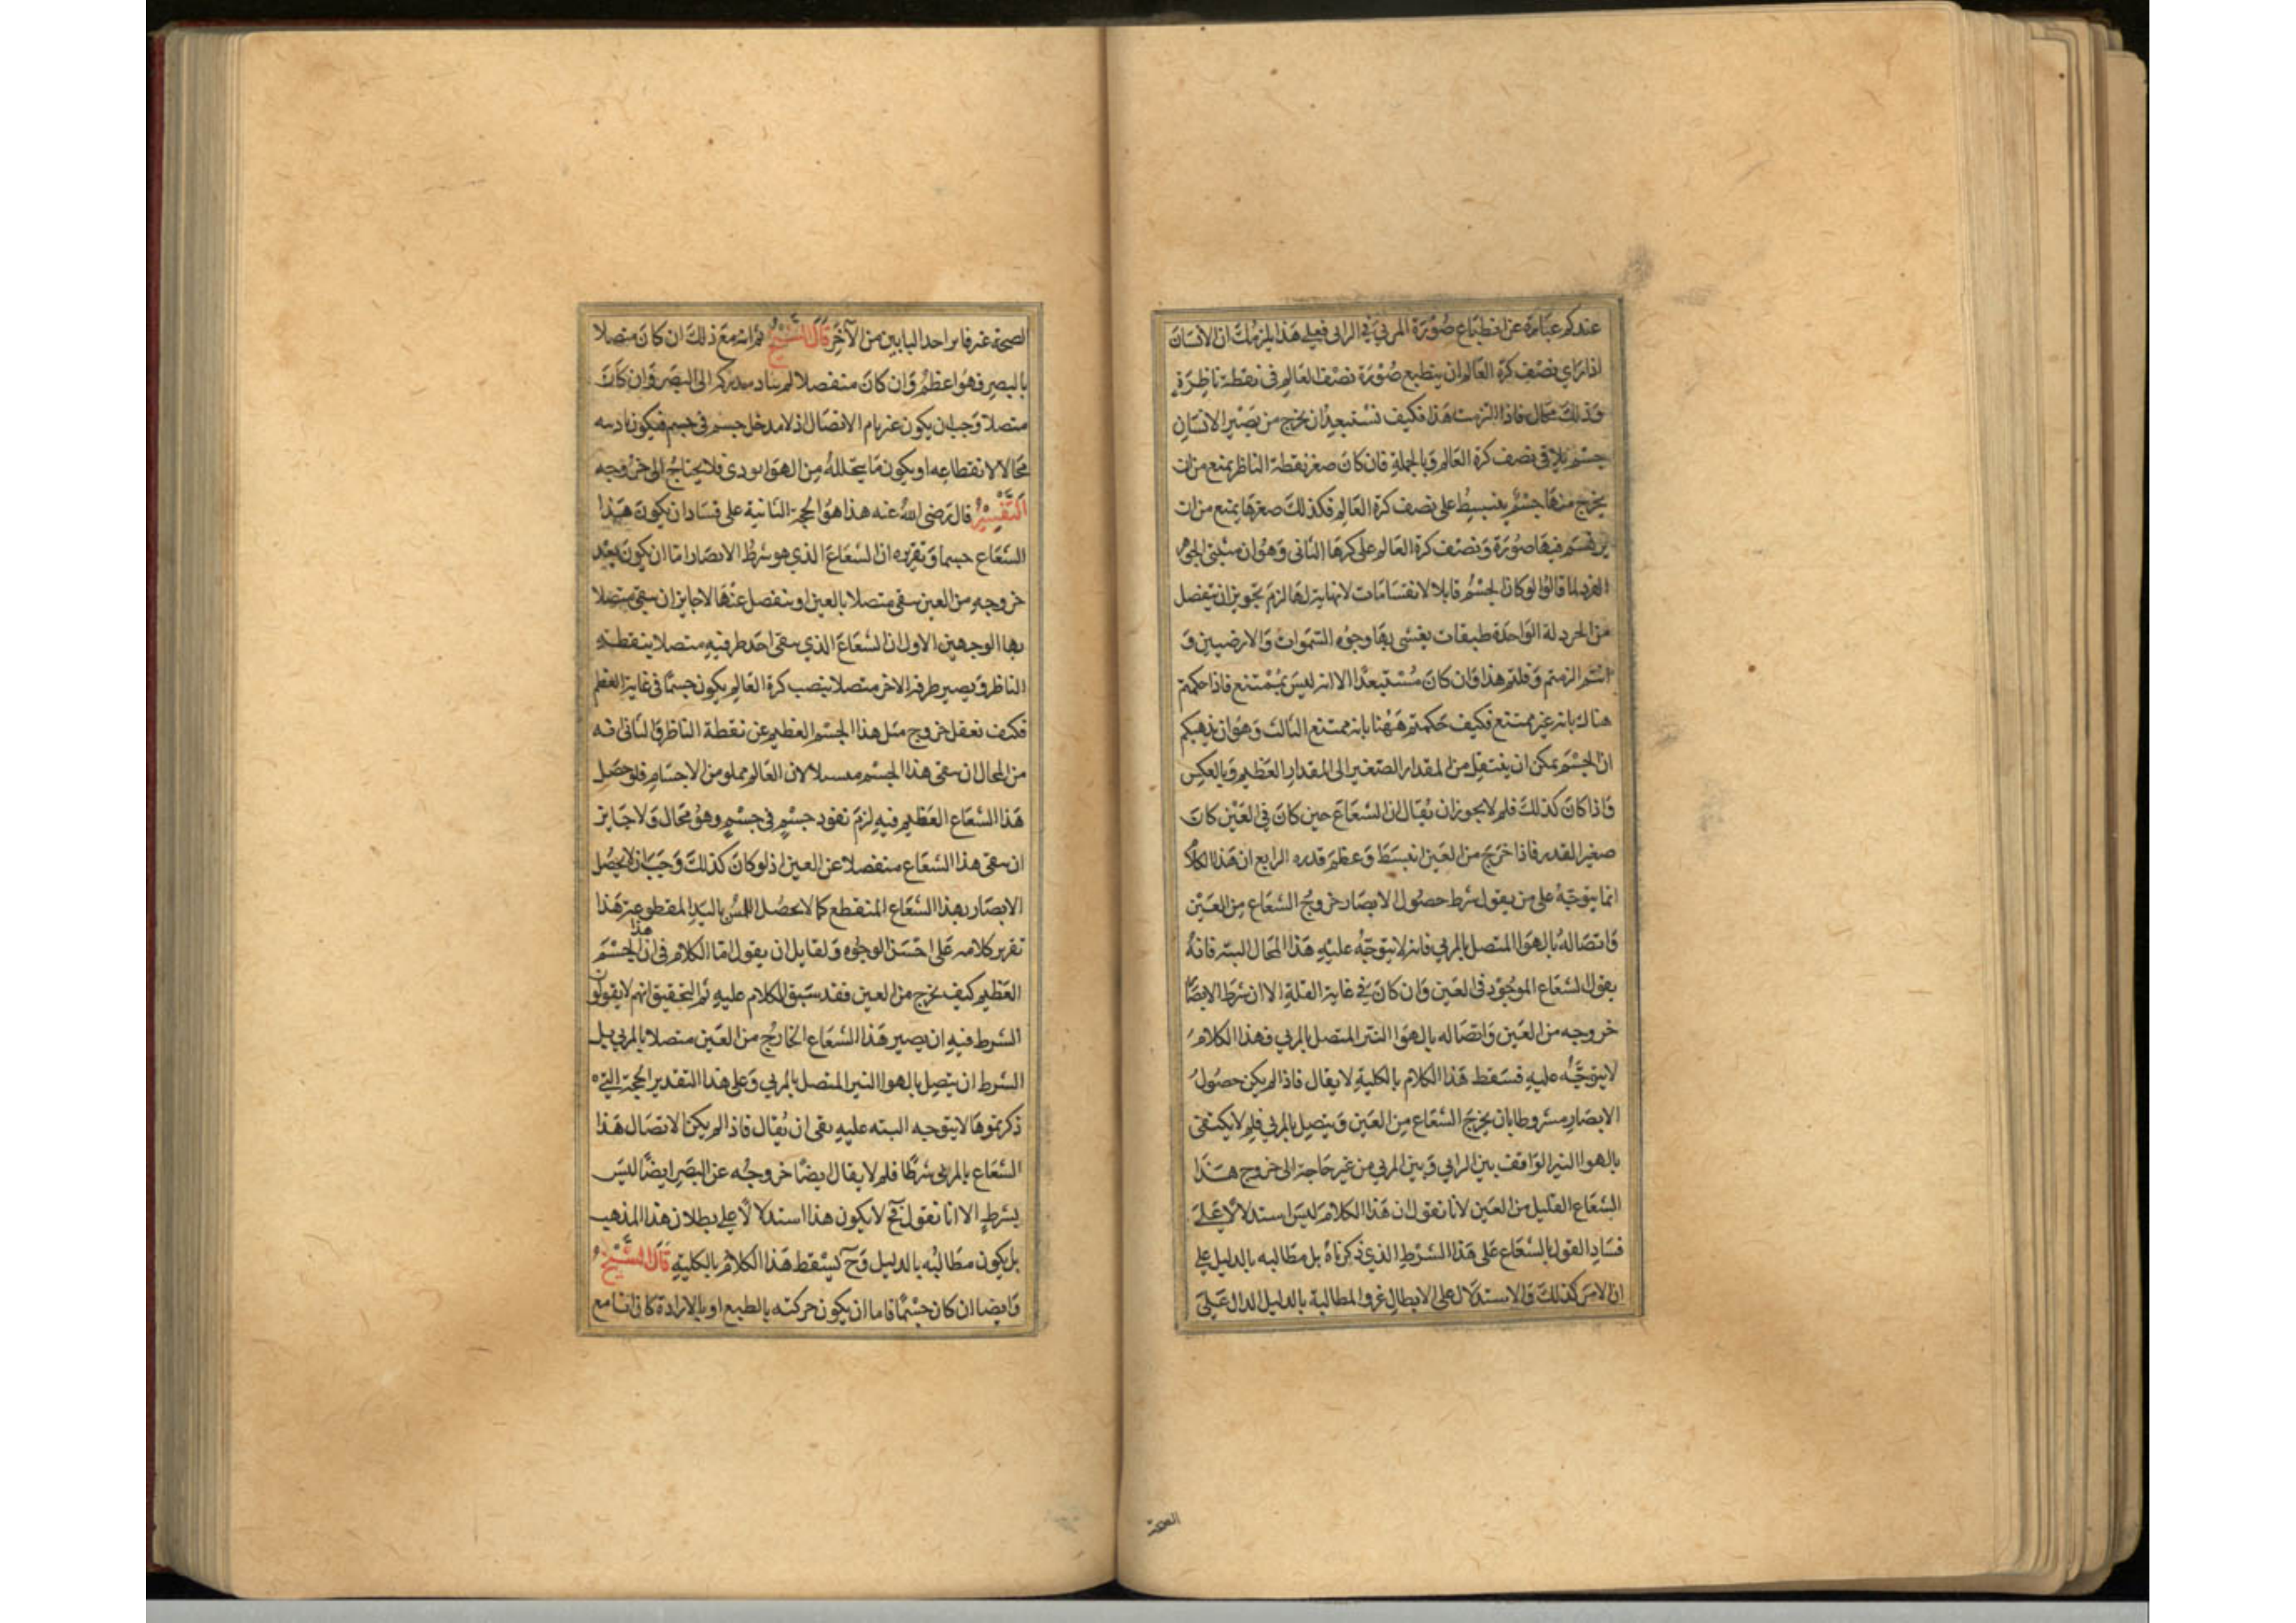 عندكم عبارة عن انطباع صورة المرئي في الرائي فعلى هذا يلزمك ان الانسان
اذا راي نصف كرة العالم ان ينطبع صورة نصف العالم في نقطة ناظرة
وذلك محال فاذا التزمت هذا فكيف تستبعد ان يخرج من بصر الانسان
جسم يلاقى نصف كرة العالم وبالجملة فان كان صغر نقطة الناظر يمنع من ان
يخرج منها جسم ينبسط على نصف كرة العالم فكذلك صغرها يمنع من ان
يرتسم فيها صورة ونصف كرة العالم على كبرها الثانى وهو ان مثبتى الجوهر
الفرد لما قالوا لو كان الجسم قابلا لانقسامات لانهاية لها لزم تجويز ان ينفصل
من الخردلة الواحدة طبقات يغشى بها وجوه السموات والارضيين و
انتم التزمتم وقلتم هذا وان كان مستبعدا الا انه ليس بممتنع فاذا حكمتم
هناك بانه غير ممتنع فكيف حكمتم ههنا بانه ممتنع الثالث وهو ان مذهبكم
ان الجسم يمكن ان ينتقل من المقدار الصغير الى المقدار العظيم وبالعكس
واذا كان كذلك فلم لا يجوز ان يقال ان الشعاع حين كان في العين كان
صغير القدر فاذا خرج من العين انبسط وعظم قدره الرابع ان هذا الكلام
انما يتوجه على من يقول شرط حصول الابصار خروج الشعاع من العين
واتصاله بالهوا المتصل بالمرئي فانه لا يتوجه عليه هذا المحال البتة فانه
يقول الشعاع الموجود في العين وان كان في غاية القلة الا ان شرط الابصا
خروجه من العين واتصاله بالهوا النير المتصل بالمرئي فهذا الكلام
لا يتوجه عليه فسقط هذا الكلام بالكلية لا يقال فاذا لم يكن حصول
الابصار مشروطا بان يخرج الشعاع من العين ويتصل بالمرئي فلم لا يكتفى
بالهوا النير الواقف بين الرائي وبين المرئي من غير حاجة الى خروج هذا
الشعاع القليل من العين لانا نقول ان هذا الكلام ليس استدلالا على
فساد القول بالشعاع على هذا الشرط الذي ذكرناه بل مطالبه بالدليل على
ان الامر كذلك والاستدلال على الابطال غير والمطالبة بالدليل الدال على
الصحة
لصحة غير فاين احد البابين من الآخر قال الشيخ ثم انه مع ذلك ان كان متصلا
بالبصر فهو اعظم وان كان منفصلا لم يتاد مدركه الى البصر وان كان
متصلا وجب ان يكون غير تام الاتصال اذ لا مدخل جسم في جسم فيكون تاديه
محالا لانقطاعه او يكون ما يتخلله من الهوا يودى فلا يحتاج الى خروجه
التفسير قال رضى الله عنه هذا هو الحجة الثانية على فساد ان يكون هذا
الشعاع جسما وتقريره ان الشعاع الذي هو شرط الابصار اما ان يكون بعد
خروجه من العين يبقى متصلا بالعين او ينفصل عنها لا جايز ان يبقى متصلا
بها الوجهين الاول ان الشعاع الذي يبقى احد طرفيه متصلا بنقطة
الناظر ويصير طرفه الاخر متصلا بنصب كرة العالم يكون جسما في غاية العظم
فكيف نعقل خروج مثل هذا الجسم العظيم عن نقطة الناظر والثانى انه
من المحال ان يبقى هذا الجسم متصلا لان العالم مملو من الاجسام فلو حصل
هذا الشعاع العظيم فيه لزم نفود جسم في جسم وهو محال ولا جايز
ان يبقى هذا الشعاع منفصلا عن العين اذ لو كان كذلك وجب ان لا يحصل
الابصار بهذا الشعاع المنقطع كما لا يحصل اللمس باليد المقطوعة هذا
تقرير كلامه على احسن الوجوه ولقايل ان يقول اما الكلام في ان هذا الجسم
العظيم كيف يخرج من العين فقد سبق الكلام عليه ثم التحقيق انهم لا يقولون
الشرط فيه ان يصير هذا الشعاع الخارج من العين متصلا بالمرئي بل
الشرط ان يتصل بالهوا النير المتصل بالمرئي وعلى هذا التقدير الحجة التي
ذكرتموها لا يتوجه البته عليه بقى ان يقال فاذا لم يكن الاتصال هذا
الشعاع بالمرئي شرطا فلم لا يقال ايضا خروجه عن البصر ايضا ليس
بشرط الا انا نقول فح لا يكون هذا استدلالا على بطلان هذا المذهب
بل يكون مطالبه بالدليل وح يسقط هذا الكلام بالكلية قال الشيخ
وايضا ان كان جسما فاما ان يكون حركته بالطبع او بالارادة كان لنا مع